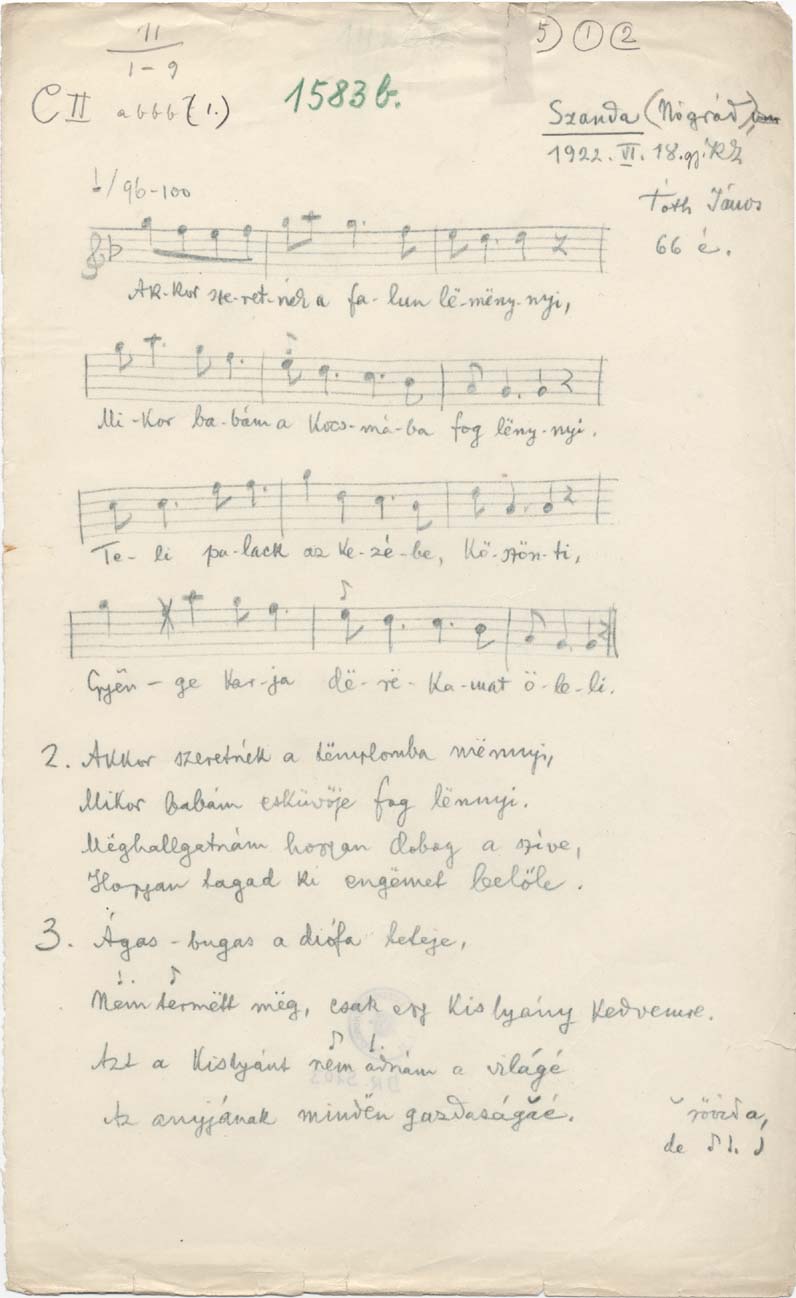 11
1-9
5 1 2
C II abbb (1.)
1583b.
Szanda (Nógrád)
1922. VI. 18. gy. KZ
Tóth János
66 é.
/96-100
Ak-kor sze-ret-nék a fa-lun lë-mëny-nyi,
Mi-kor ba-bám a kocs-má-ba fog lëny-nyi.
Te-li pa-lack az ke-zé-be, kö-szön-ti,
Gyën-ge kar-ja dë-rë-ka-mat ö-le-li.
2. Akkor szeretnék a tëmplomba mënnyi,
Mikor babám esküvője fog lënnyi.
Mëghallgatnám hogyan dobog a szíve,
Hogyan tagad ki engëmet belőle.
3. Ágas-bugas a diófa teteje,
Nem termëtt mëg, csak egy kislyány kedvemre.
Azt a kislyánt nem adnám a világé
Az anyjának mindën gazdaságáé.
de